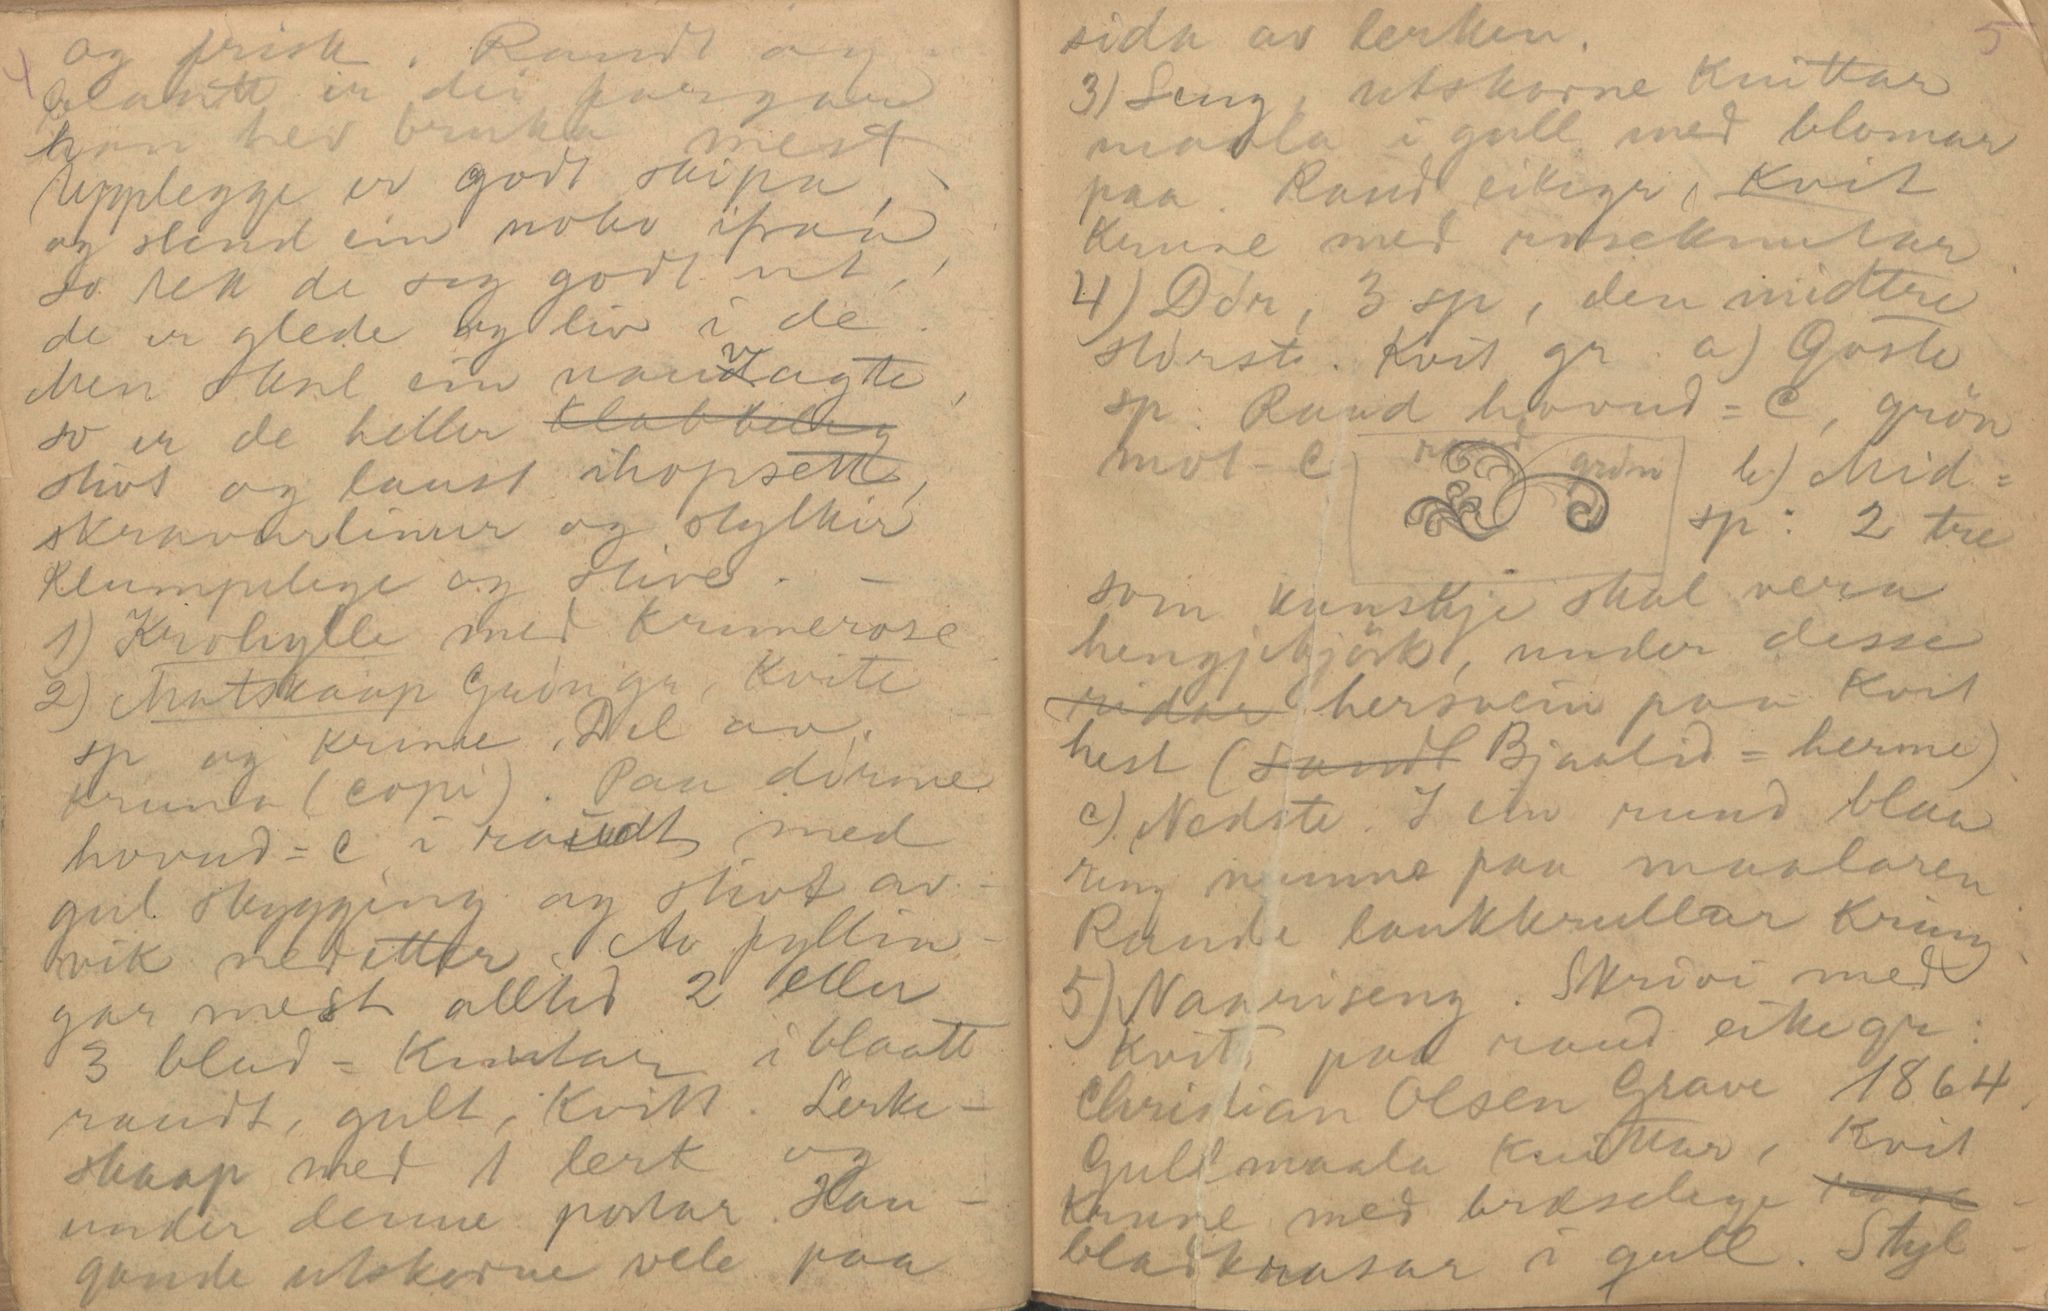 4
og frisk. Raudt og
blaatt er dei fargane
han hev bruka mest
Upplegge er godt skipa,
og stend ein noko ifraa
so tek de seg godt ut,
de er glede og liv i de.
Men skal ein vandagte,
so er de heller klabbeleg
stivt og laust ihopsett,
skravurlinur og stylkir
klumpelege og stive. –
1) Krohylle med krunerose
2) Matskaap Grøn gr, kvite
sp og krune. Del av
kruna (copi). Paa dörine
hovud = C i raudt med
gul skygging og stivt av-
vik nedetter. Av fyllin-
gar mest alltid 2 eller
3 blad = knutar i blaatt
raudt, gult, kvitt. Lerke-
skaap med 1 lerk og
under denne postar. Han-
gande utskorne vele paa
5
sida av lerken.
3) Seng, utskorne knuttar
maala i gull med blomar
paa. Raud eikegr, kvit
krune med roseknutar
4) Dör, 3 sp, den midtre
störste. Kvit gr. a) Gøste
sp: Raud hovud = C, grön
mot-C
raud
grön
b) Mid=
sp: 2 tre
som kanskje skal vera
hengjebjörk, under desse
ridar hersvein paa kvit
hest (Sandt Bjaalid = herme)
c) Nedste. I ein rund blaa
ring namne paa maalaren
Raude laukkrullar kring.
5) Naariseng. Skrivi med
kvitt paa raud eikegr:
Christian Olsen Grave 1864.
Gullmaala knuttar, kvit
krune med bræselege rose-
bladkrasar i gull. Styl-